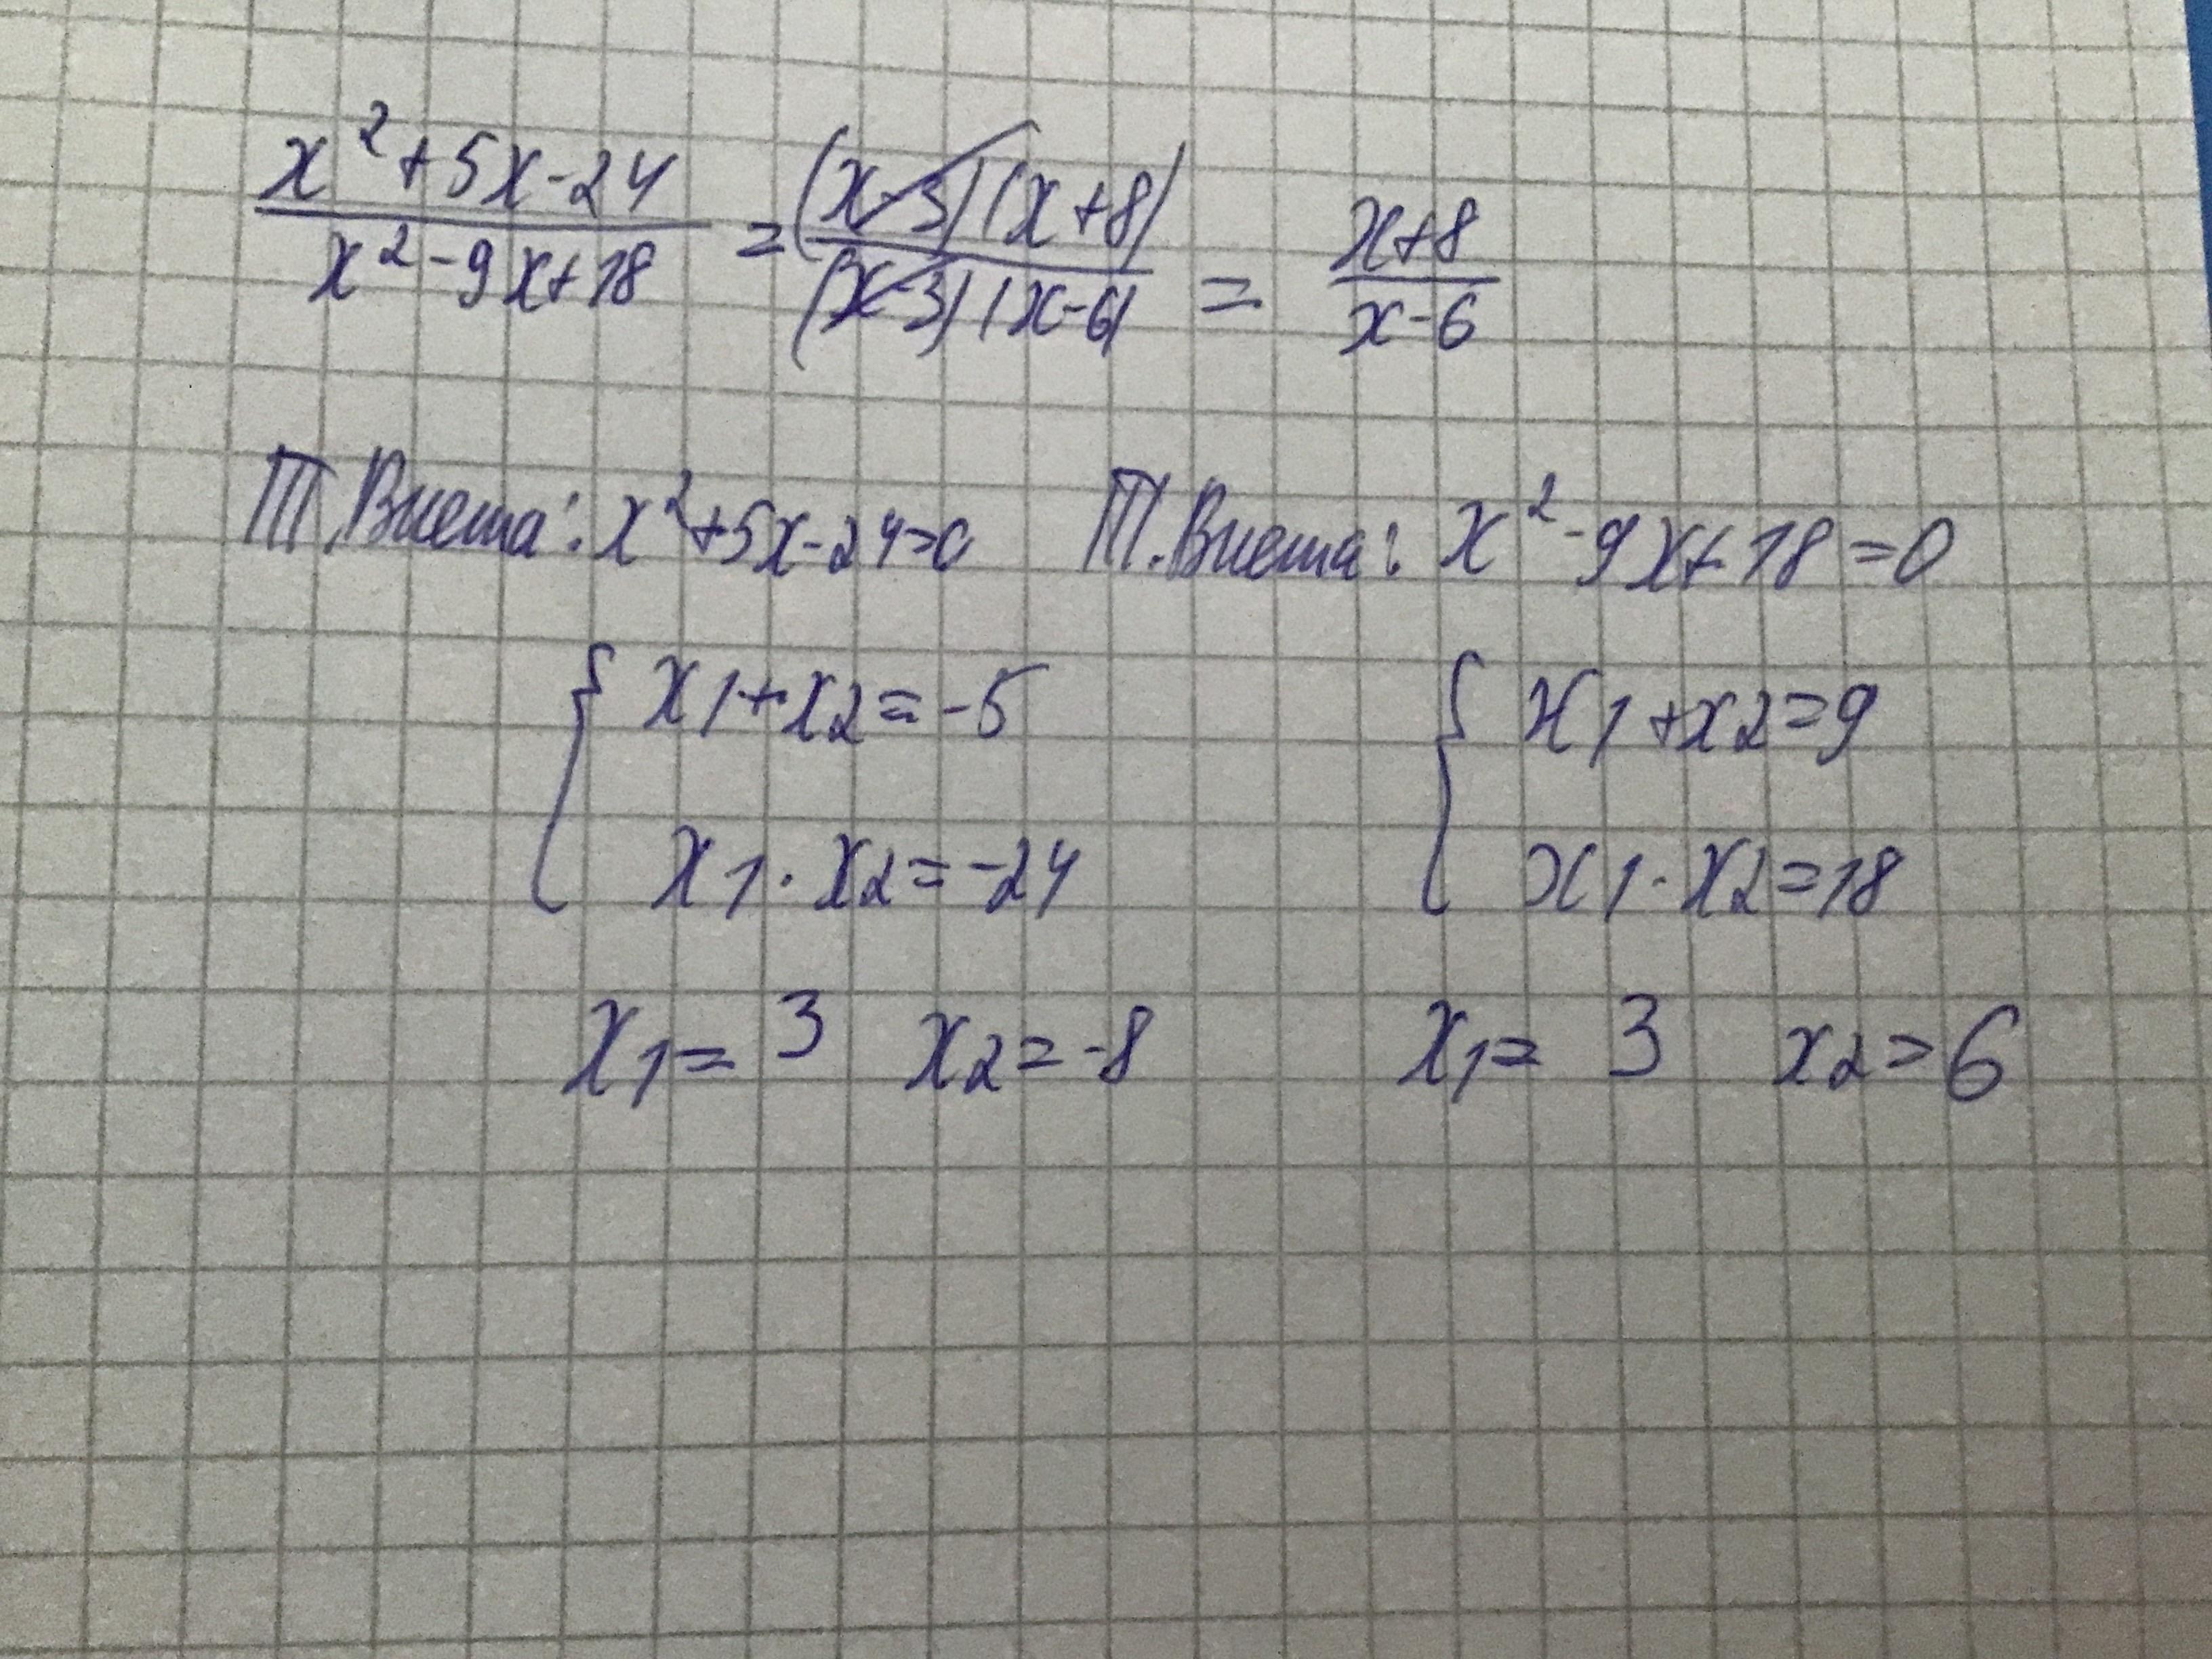 x²+5x-24 / x²-9x+18 = (x-3)(x+8) / (x-3)(x-6) = x+8 / x-6
Т.Виета: x²+5x-24=0 Т.Виета: x²-9x+18=0
{ x1+x2=-5 { x1+x2=9
x1·x2=-24 x1·x2=18
x1=3 x2=-8 x1=3 x2=6